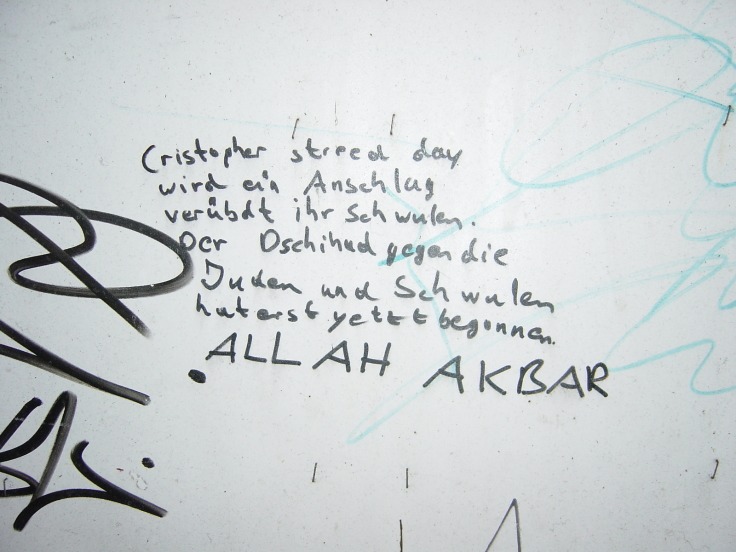 Cristopher streed day
wird ein Anschlag
verübdt ihr Schwulen.
Der Dschihad gegen die
Juden und Schwulen
hat erst yetzt begonnen.
ALLAH AKBAR